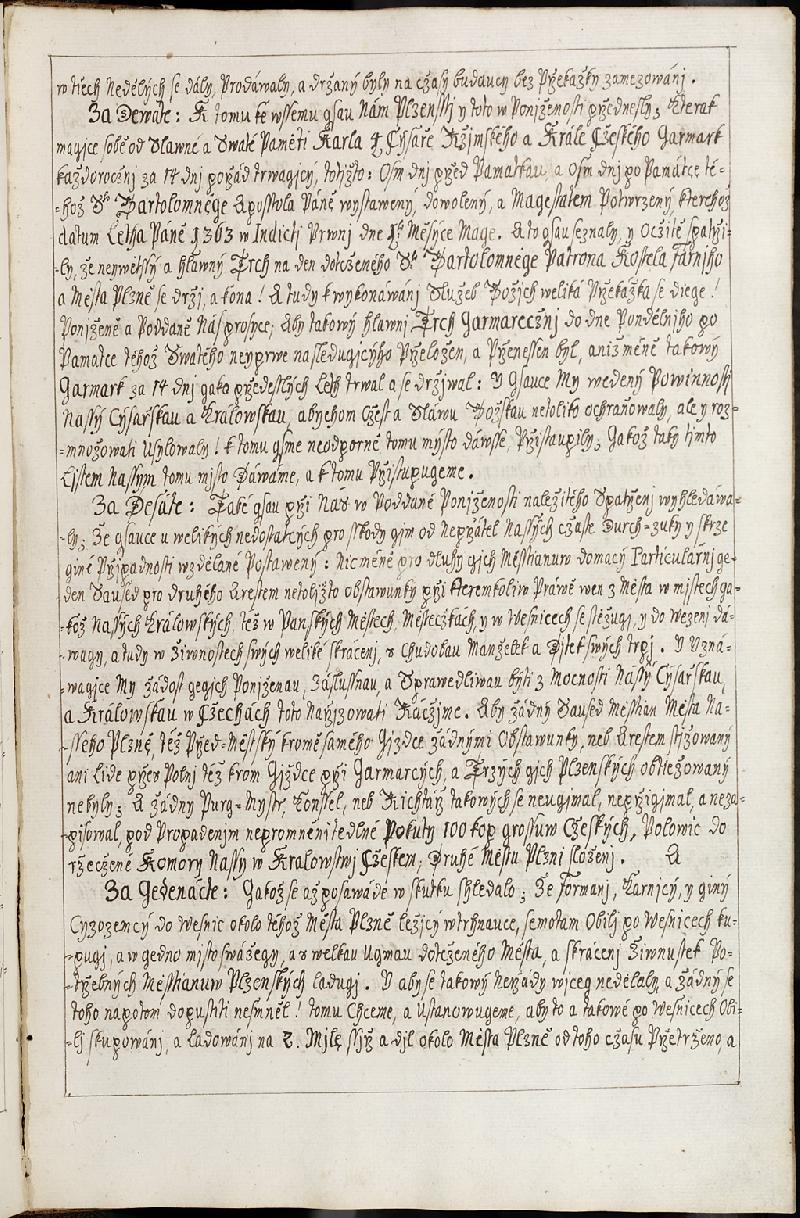 w tiech Nedělých se dály, Prodáwaly, a držaný býly na cžasý budaucý bez Pržekažký zamezowánj.
Za Dewáté: K tomu té wssemu gsau Nám Plzenssſtj y toto w Ponjženosti pržednesly; kterak
magjce sobě od Slawné a Swaté Paměti Karla 4. Cýsaře Ržjmského a Krále Cžeského Garmark
každorocžnj za 14 dnj pořád trwagjcý, totižto: Osm dnj pržed Památkau, a Osm dnj po Památce té-
-hož Sv. Bartoloměge Aposstola Páně wystawený, dowolený, a Magestátem Potwrzený, kterehož
datum Létha Páně 1363 w Indicti Prwnj dne Měsýce Mage. A to gsau seznaly, y Ocžitě spatrži-
-ly, že neywětssý a hlawný Trch na den dotcženého Sv. Bartoloměge Patrona Kostela farnjho
a Města Plzně se držj, a koná! A tudy k wykonáwánj Služeb Božjch weliká Pržekážka se děge!
Ponjženě a Poddaně Nás prosyce; Aby takowý hlawnj Trch Garmarecžnj do dne Pondělnjho po
Památce téhož Swatého neyprwé následugjcýho Prželožen, a Pržnessen býl, aniž méně takowý
Garmark za 14 dnj gako pržedesslých Leth trwal a se držjwal: Y Gsauce My wedený Powinnostj
Nassý Cýsařskau a Králowskau, abychom Cžest a Sláwu Božskau netoliko ochraňowaly, ale y roz-
-množowati Usylowaly! k tomu gsme neodporně tomu mýsto dáwsse, Pržistaupily; Jakož taky tjmto
Listem Nassým tomu mjsto Dáwáme, a k tomu Pržistupugeme.
Za Desáté: Také gsau prži Nás w Poddané Ponjženosti naležitého Spatrženj wyhledáwa-
-ly; Že gsauce u welikých nedostatcých pro sskody gjm od Neprzátel Nassých cžasté Durch-zuký y skrze
giné Pržjpadnosti wzdělané Postawený: Nicméně pro dluhy gjch Měsstianuw domacý Particulárnj ge-
den Saused pro druhého Arestem netolikžto obstawunký prži kteremkoliw Práwě wen z Města w mjstech ga-
-kož Nassých Králowských, též w Panských Městech, Městecžkách, y w Wesnicech se stěžugj, y do wězenj dá-
-wagj, a tudy w Žiwnostech swých weliké skrácenj, s Chudobau Manželek a Djtek swých trpj. Y Uzná-
-wagjce My žádost gegjch Ponjženau, Záslussnau, a Sprawedliwau býti z Mocnosti Nassý Cýsařskau,
a Králowskau w Cžechách toto Narjzowati Rácžjme. Aby žádný Saused Měsstian Města Na-
-sseho Plzně, též Pržed-Městský kromě samého Gjzdce žádnými Obstawunký, neb Arestem stjžowaný
ani Lidé pržes Polnj též krom Gjzdce prži Garmarcých, a Trzých gjch Plzenských obtiežowaný
nebýly; A žádný Purg-Mystr, Konssel, neb Richtárž takowých se neugjmal, nepržigjmal, a neza-
-pisowal, pod Propadenjm nepromněnitedlné Pokuty 100 kop grossuw Cžeských, Polowic do
ržecžené Komory Nassý w Kralowstwj Cžeském; Druhé Městu Plzni složenj. A
Za Gedenácté: Jakož se až posawáde w skutku shledalo; Že Formanj, Karnjcý, y giný
Cyzozemcý do Wesnic okolo téhož Města Plzně ležjcý wtrhnauce, semotam Obilj po Wesnicech ku-
-pugj, a w gedno mjsto swážegj, a s welkau Ugmau dotcženého Města, a skrácenj Žiwnustek Po-
-tržebných Měsstianuw Plzenských ladugj. Y aby se takowý Neržády wjceg nedělaly, a žádný se
toho napotom dopustiti nesměl! tomu Chceme, a Ustanowugeme, aby to a takowé po Wesnicech Obi-
-lj skupowánj, a ladowánj na 2. Mjle ssjrž a djl okolo Města Plzně od toho cžasu Pržetrženo, a